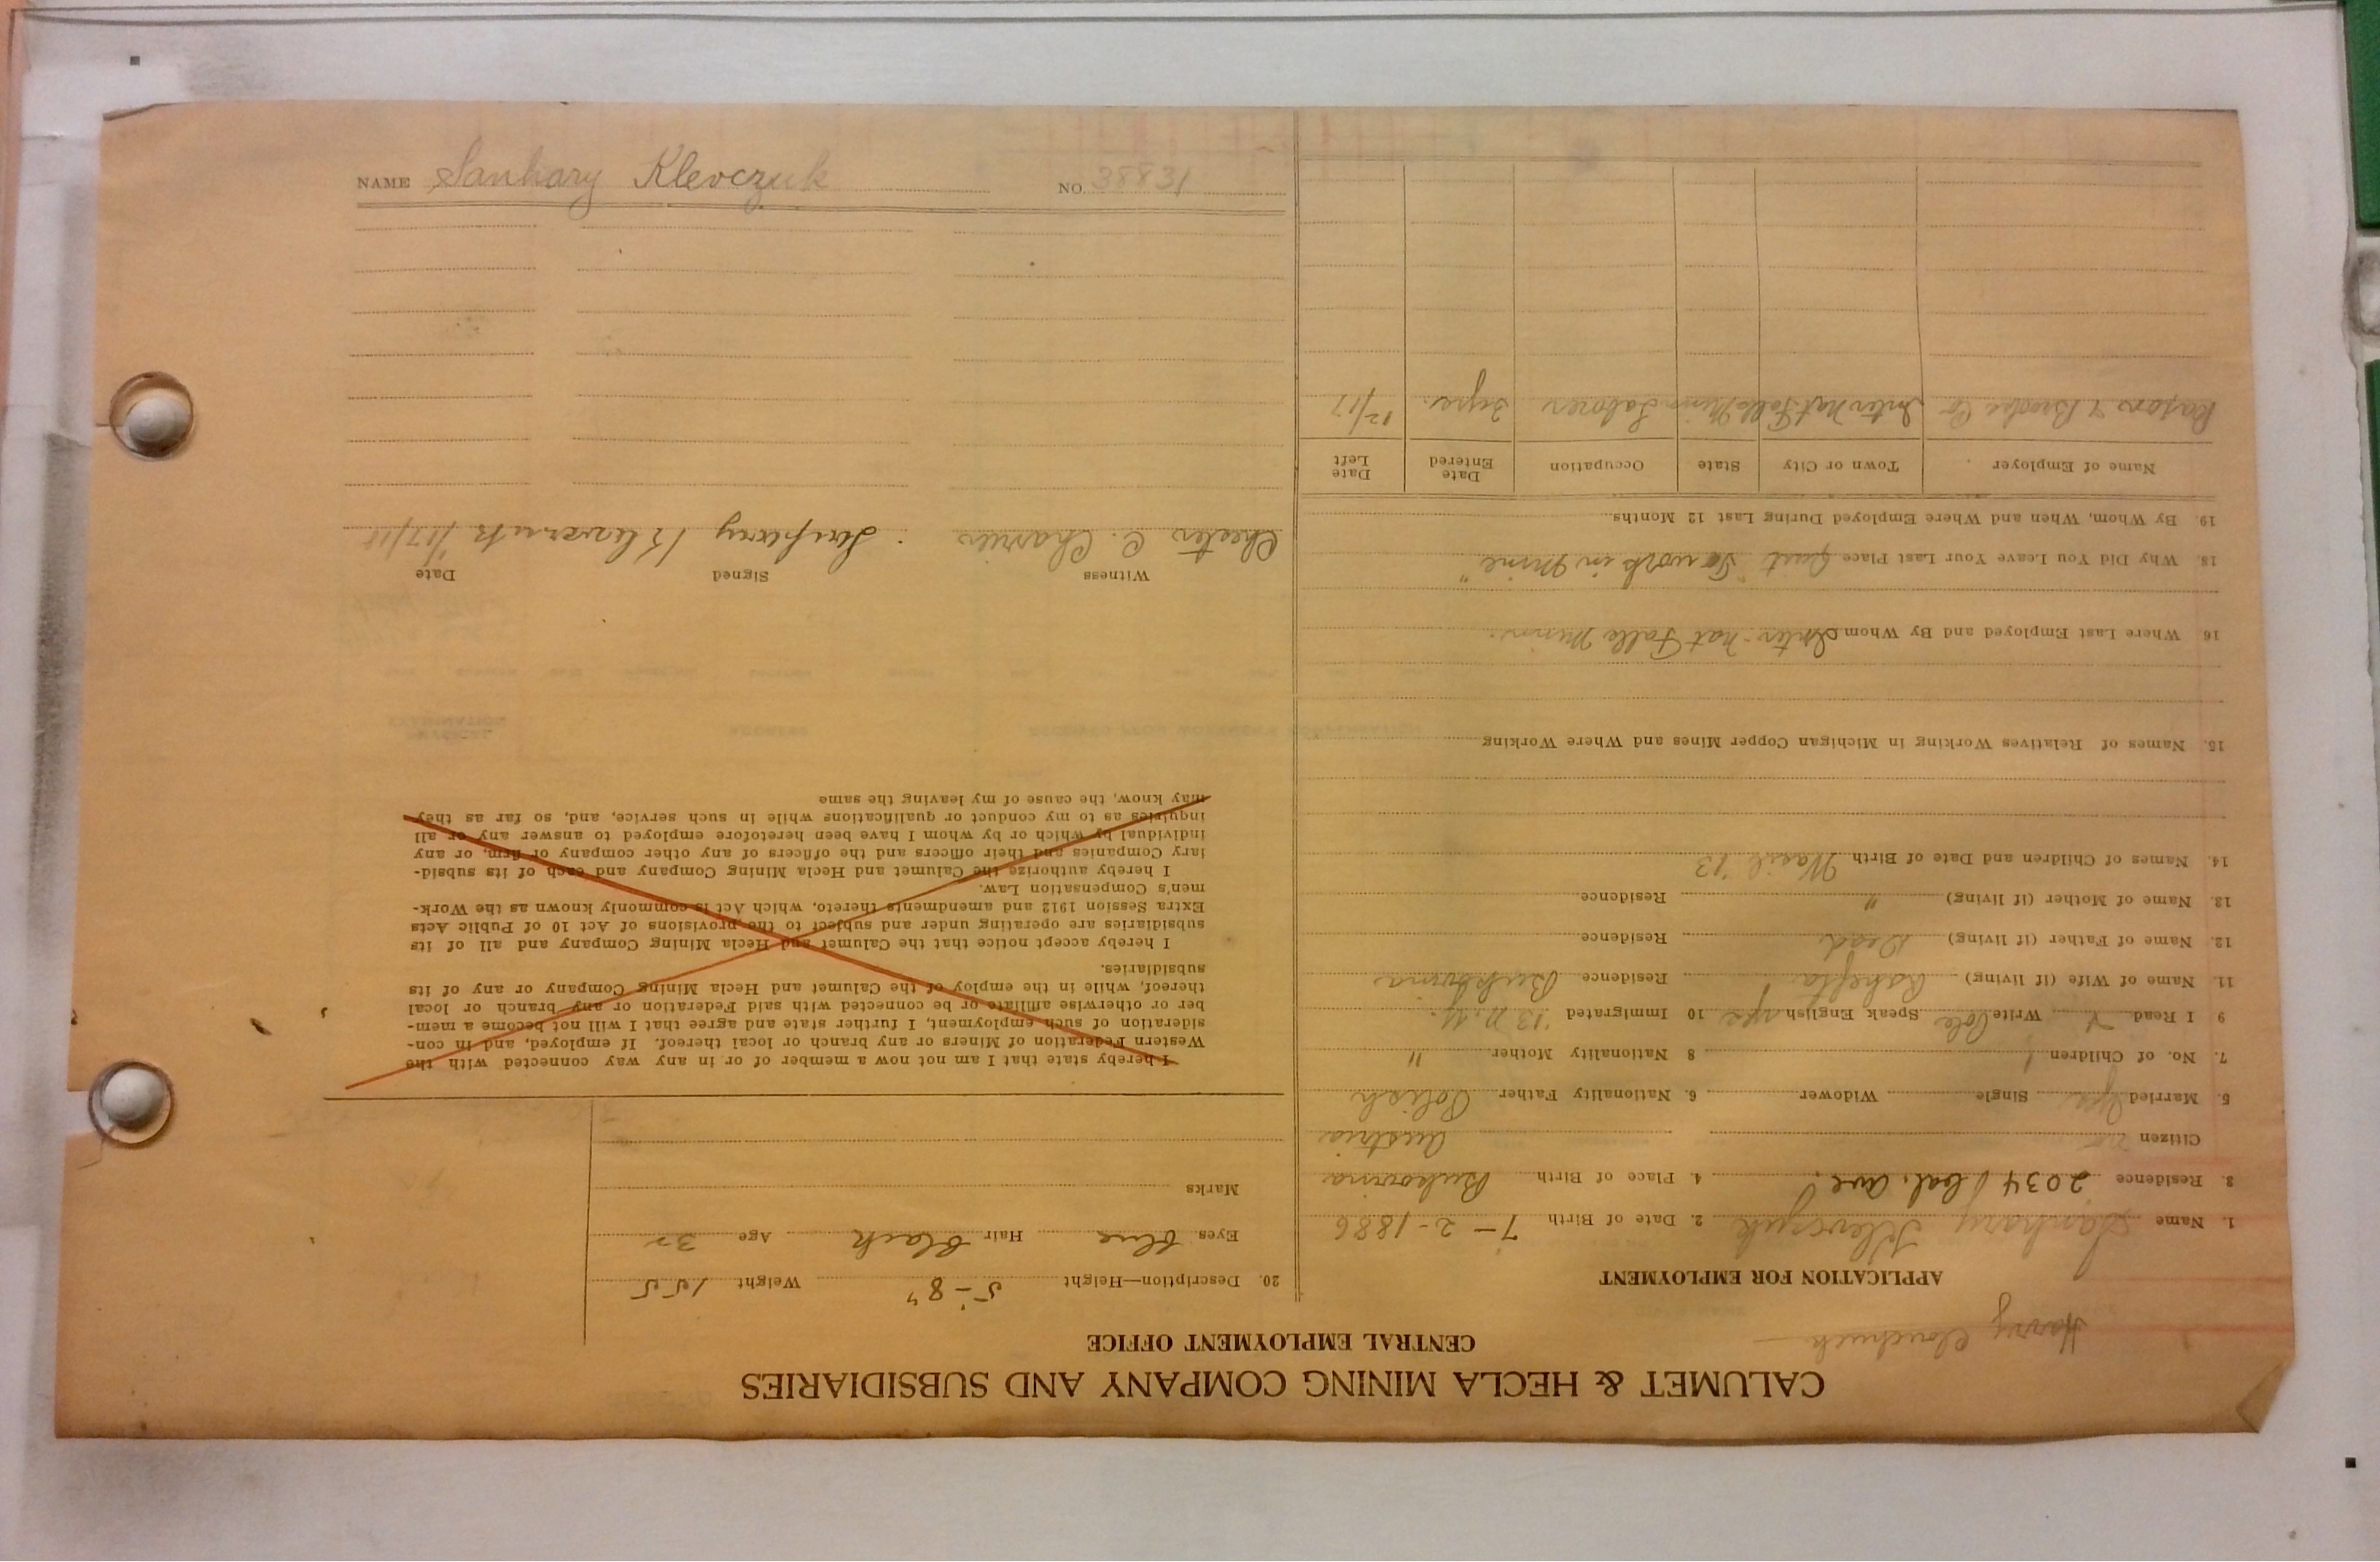 CALUMET & HECLA MINING COMPANY AND SUBSIDIARIES
CENTRAL EMPLOYMENT OFFICE
Harry
APPLICATION FOR EMPLOYMENT
1. Name Sanhary Klevczuk 2. Date of Birth 7-2-1886
3. Residence 2034 Cal. Ave. 4. Place of Birth Bukovina
Citizen no Austria
5. Married yes Single Widower 6. Nationality Father Polish
7. No. of Children 1 8 Nationality Mother "
9 I Read Write Pole Speak English yes 10 Immigrated '13 N.Y.
11. Name of Wife (if living) Residence Bukovina
12. Name of Father (if living) Dead Residence
13. Name of Mother (if living) " Residence
14. Names of Children and Date of Birth Wasil '13
15. Names of Relatives Working in Michigan Copper Mines and Where Working
16 Where Last Employed and By Whom Inter-nat Falls Minn.
18. Why Did You Leave Your Last Place Quit "To work in Mine"
19. By Whom, When and Where Employed During Last 12 Months
Name of Employer Town or City State Occupation Date Entered Date Left
Co Inter Nat Falls Minn Laborer 3 yrs. 12/17
20. Description—Height 5'-8" Weight 155
Eyes blue Hair black Age 32
Marks
I hereby state that I am not now a member of or in any way connected with the
Western Federation of Miners or any branch or local thereof. If employed, and in con-
sideration of such employment, I further state and agree that I will not become a mem-
ber or otherwise affiliate or be connected with said Federation or any branch or local
thereof, while in the employ of the Calumet and Hecla Mining Company or any of its
subsidiaries.
I hereby accept notice that the Calumet and Hecla Mining Company and all of its
subsidiaries are operating under and subject to the provisions of Act 10 of Public Acts
Extra Session 1912 and amendments thereto, which Act is commonly known as the Work-
men's Compensation Law.
I hereby authorize the Calumet and Hecla Mining Company and each of its subsid-
iary Companies and their officers and the officers of any other company or firm, or any
individual by which or by whom I have been heretofore employed to answer any or all
inquiries as to my conduct or qualifications while in such service, and, so far as they
may know, the cause of my leaving the same
Witness Signed Date
Chester C. 1/17/18
NAME Sanhary Klevczuk NO. 38831